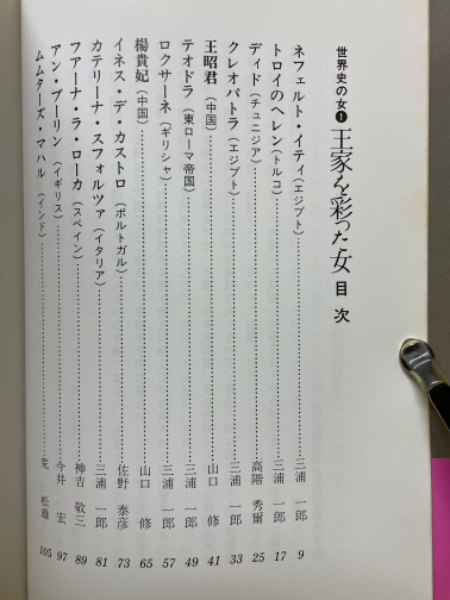 世界史の女❶王家を彩った女 目次
ネフェルト・イティ(エジプト)……三浦 一郎 9
トロイのヘレン(トルコ)……三浦 一郎 17
ディド(チュニジア)……高階 秀爾 25
クレオパトラ(エジプト)……三浦 一郎 33
王昭君(中国)……山口 修 41
テオドラ(東ローマ帝国)……三浦 一郎 49
ロクサーネ(ギリシャ)……三浦 一郎 57
楊貴妃(中国)……山口 修 65
イネス・デ・カストロ(ポルトガル)……佐野 泰彦 73
カテリーナ・スフォルツァ(イタリア)……三浦 一郎 81
ファーナ・ラ・ローカ(スペイン)……神吉 敬三 89
アン・ブーリン(イギリス)……今井 宏 97
ムムターズ・マハル(インド)……荒 松雄 105